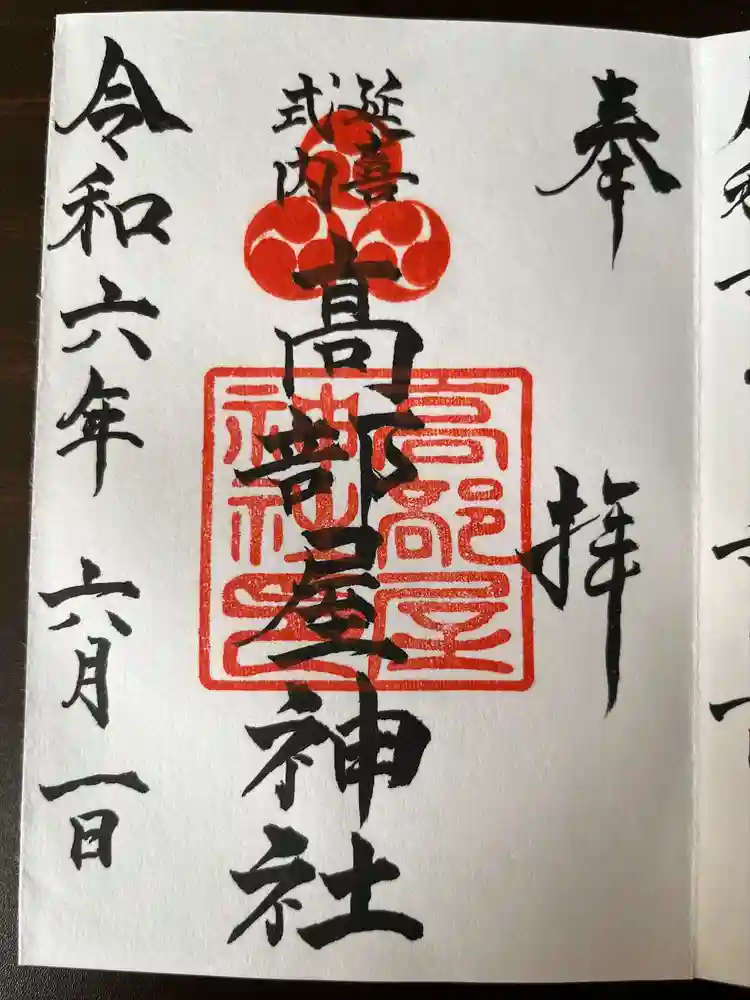 奉拝
延喜
式内
高部屋神社
高部屋
神社印
令和六年 六月一日